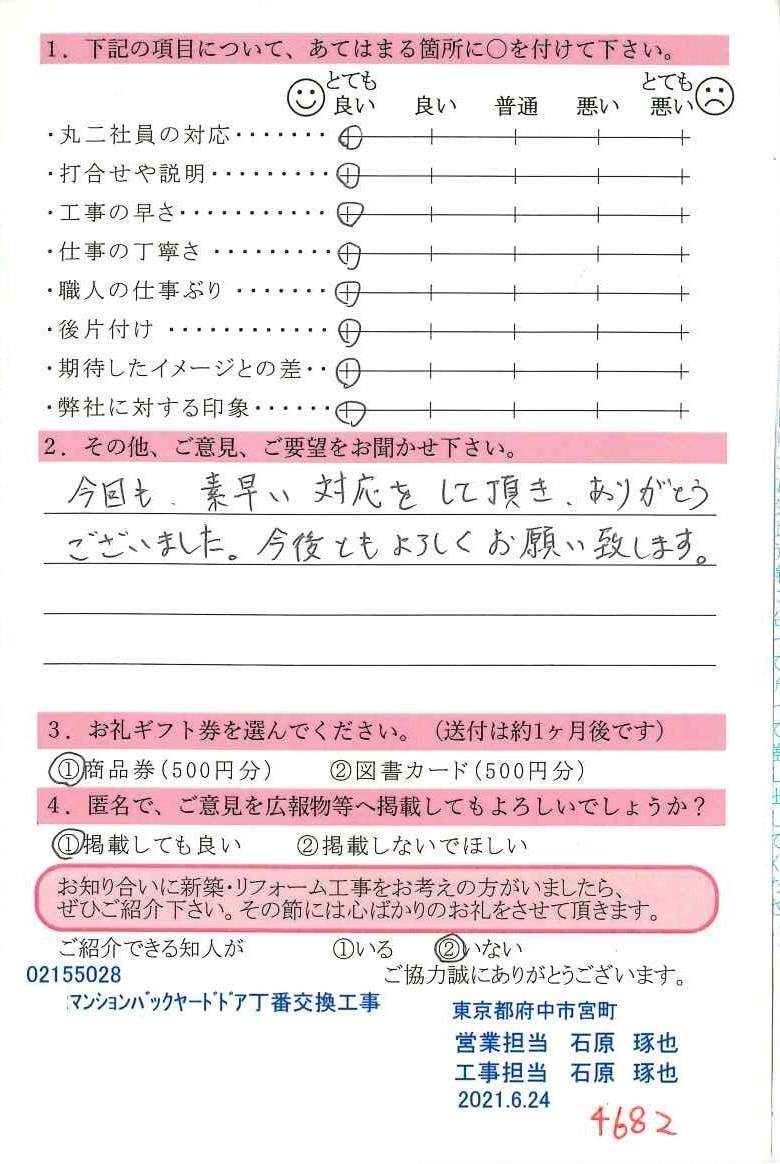 1. 下記の項目について、あてはまる箇所に○を付けて下さい。
とても良い 良い 普通 悪い とても悪い
・丸二社員の対応・・・・・・・
・打合せや説明・・・・・・・・・
・工事の早さ・・・・・・・・・・・
・仕事の丁寧さ ・・・・・・・・・
・職人の仕事ぶり ・・・・・・・
・後片付け ・・・・・・・・・・・・
・期待したイメージとの差・・
・弊社に対する印象・・・・・・
2. その他、ご意見、ご要望をお聞かせ下さい。
今回も、素早い対応をして頂き、ありがとう
ございました。今後ともよろしくお願い致します。
3. お礼ギフト券を選んでください。(送付は約1ヶ月後です)
①商品券(500円分) ②図書カード(500円分)
4. 匿名で、ご意見を広報物等へ掲載してもよろしいでしょうか?
①掲載しても良い ②掲載しないでほしい
お知り合いに新築・リフォーム工事をお考えの方がいましたら、
ぜひご紹介下さい。その節には心ばかりのお礼をさせて頂きます。
ご紹介できる知人が ①いる ②いない
02155028 ご協力誠にありがとうございます。
マンションバックヤードドア丁番交換工事
東京都府中市宮町
営業担当 石原 琢也
工事担当 石原 琢也
2021.6.24
4682